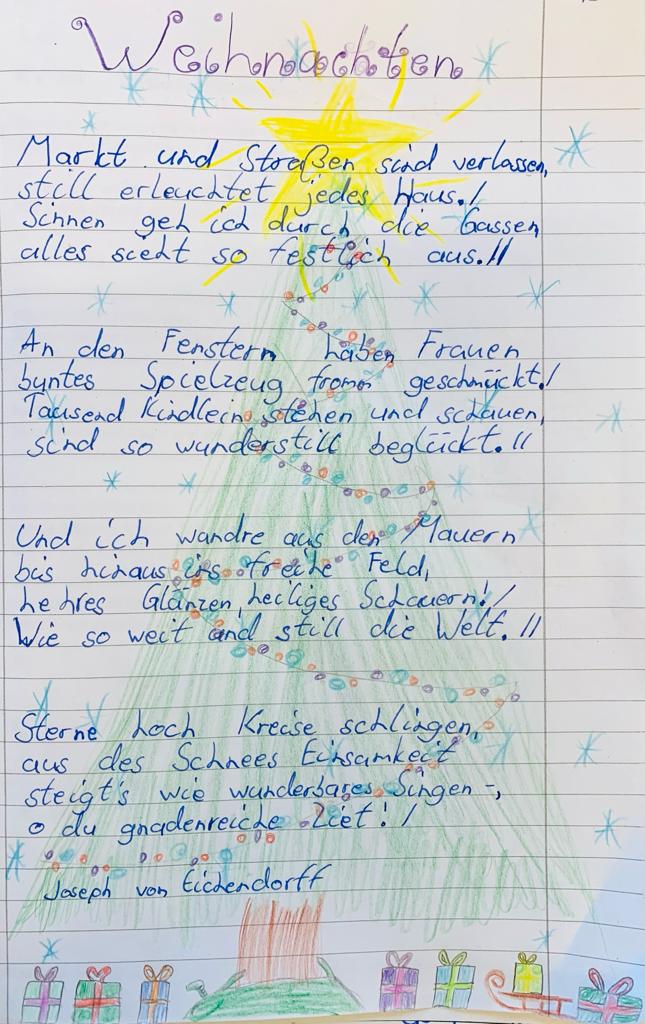 Weihnachten
Markt und Straßen sind verlassen,
still erleuchtet jedes Haus./
Sinnen geh ich durch die Gassen
alles sieht so festlich aus.//
An den Fenstern haben Frauen
buntes Spielzeug fromm geschmückt./
Tausend Kindlein stehen und schauen,
sind so wunderstill beglückt.//
Und ich wandre aus den Mauern
bis hinaus ins freie Feld,
hehres Glänzen, heiliges Schauern!/
Wie so weit und still die Welt.//
Sterne hoch Kreise schlingen,
aus des Schnees Einsamkeit
steigt's wie wunderbares Singen -,
o du gnadenreiche Ziet!/
Joseph von Eichendorff